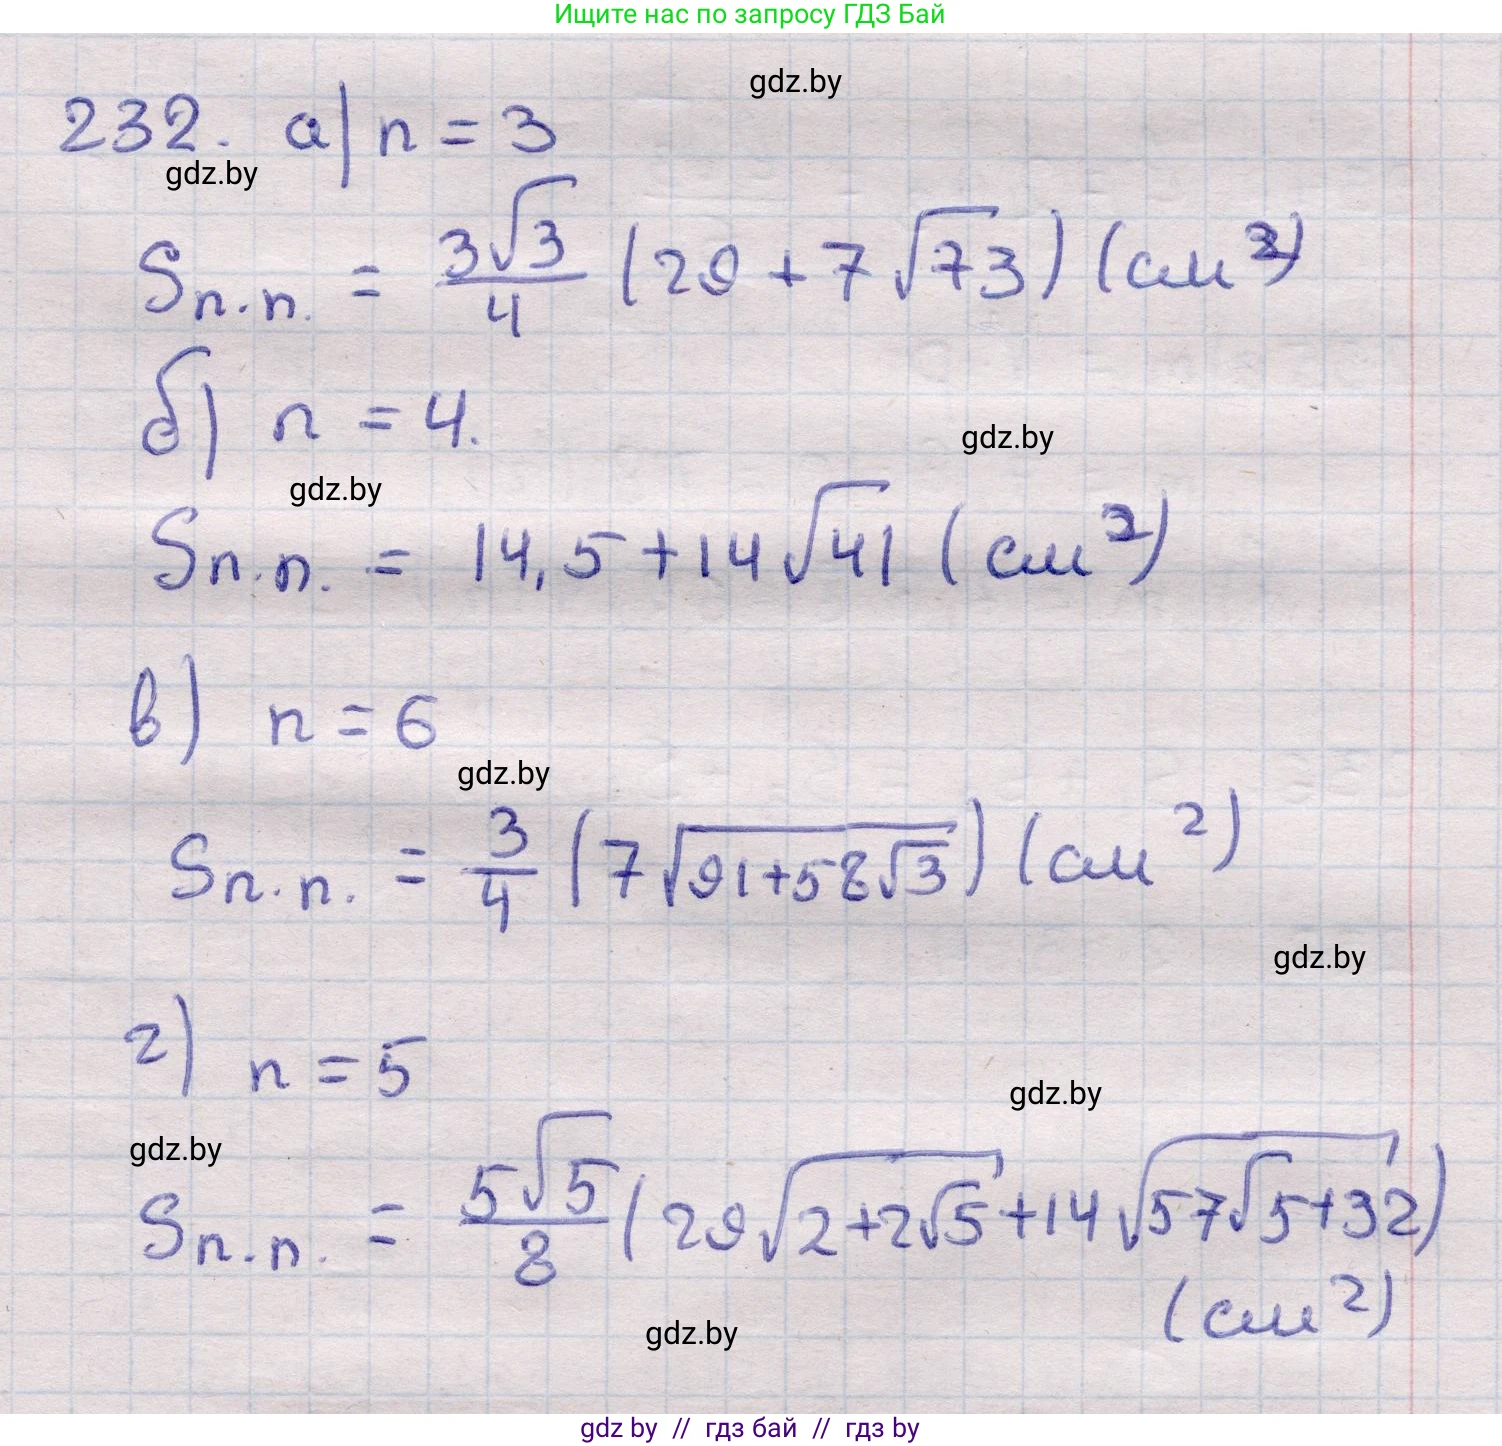 Ищите нас по запросу ГДЗ Бай
gdz.by
232. а) n = 3
gdz.by
Sп.п. = 3√3/4 (29 + 7√73) (см²)
б) n = 4.
gdz.by
gdz.by
Sп.п. = 14,5 + 14√41 (см²)
в) n = 6
gdz.by
Sп.п. = 3/4 (7√(91+58√3)) (см²)
gdz.by
г) n = 5
gdz.by
gdz.by
Sп.п. = 5√5/8 (29√(2+2√5) + 14√(57√5+32))
(см²)
gdz.by
gdz by // гдз бай // гдз by